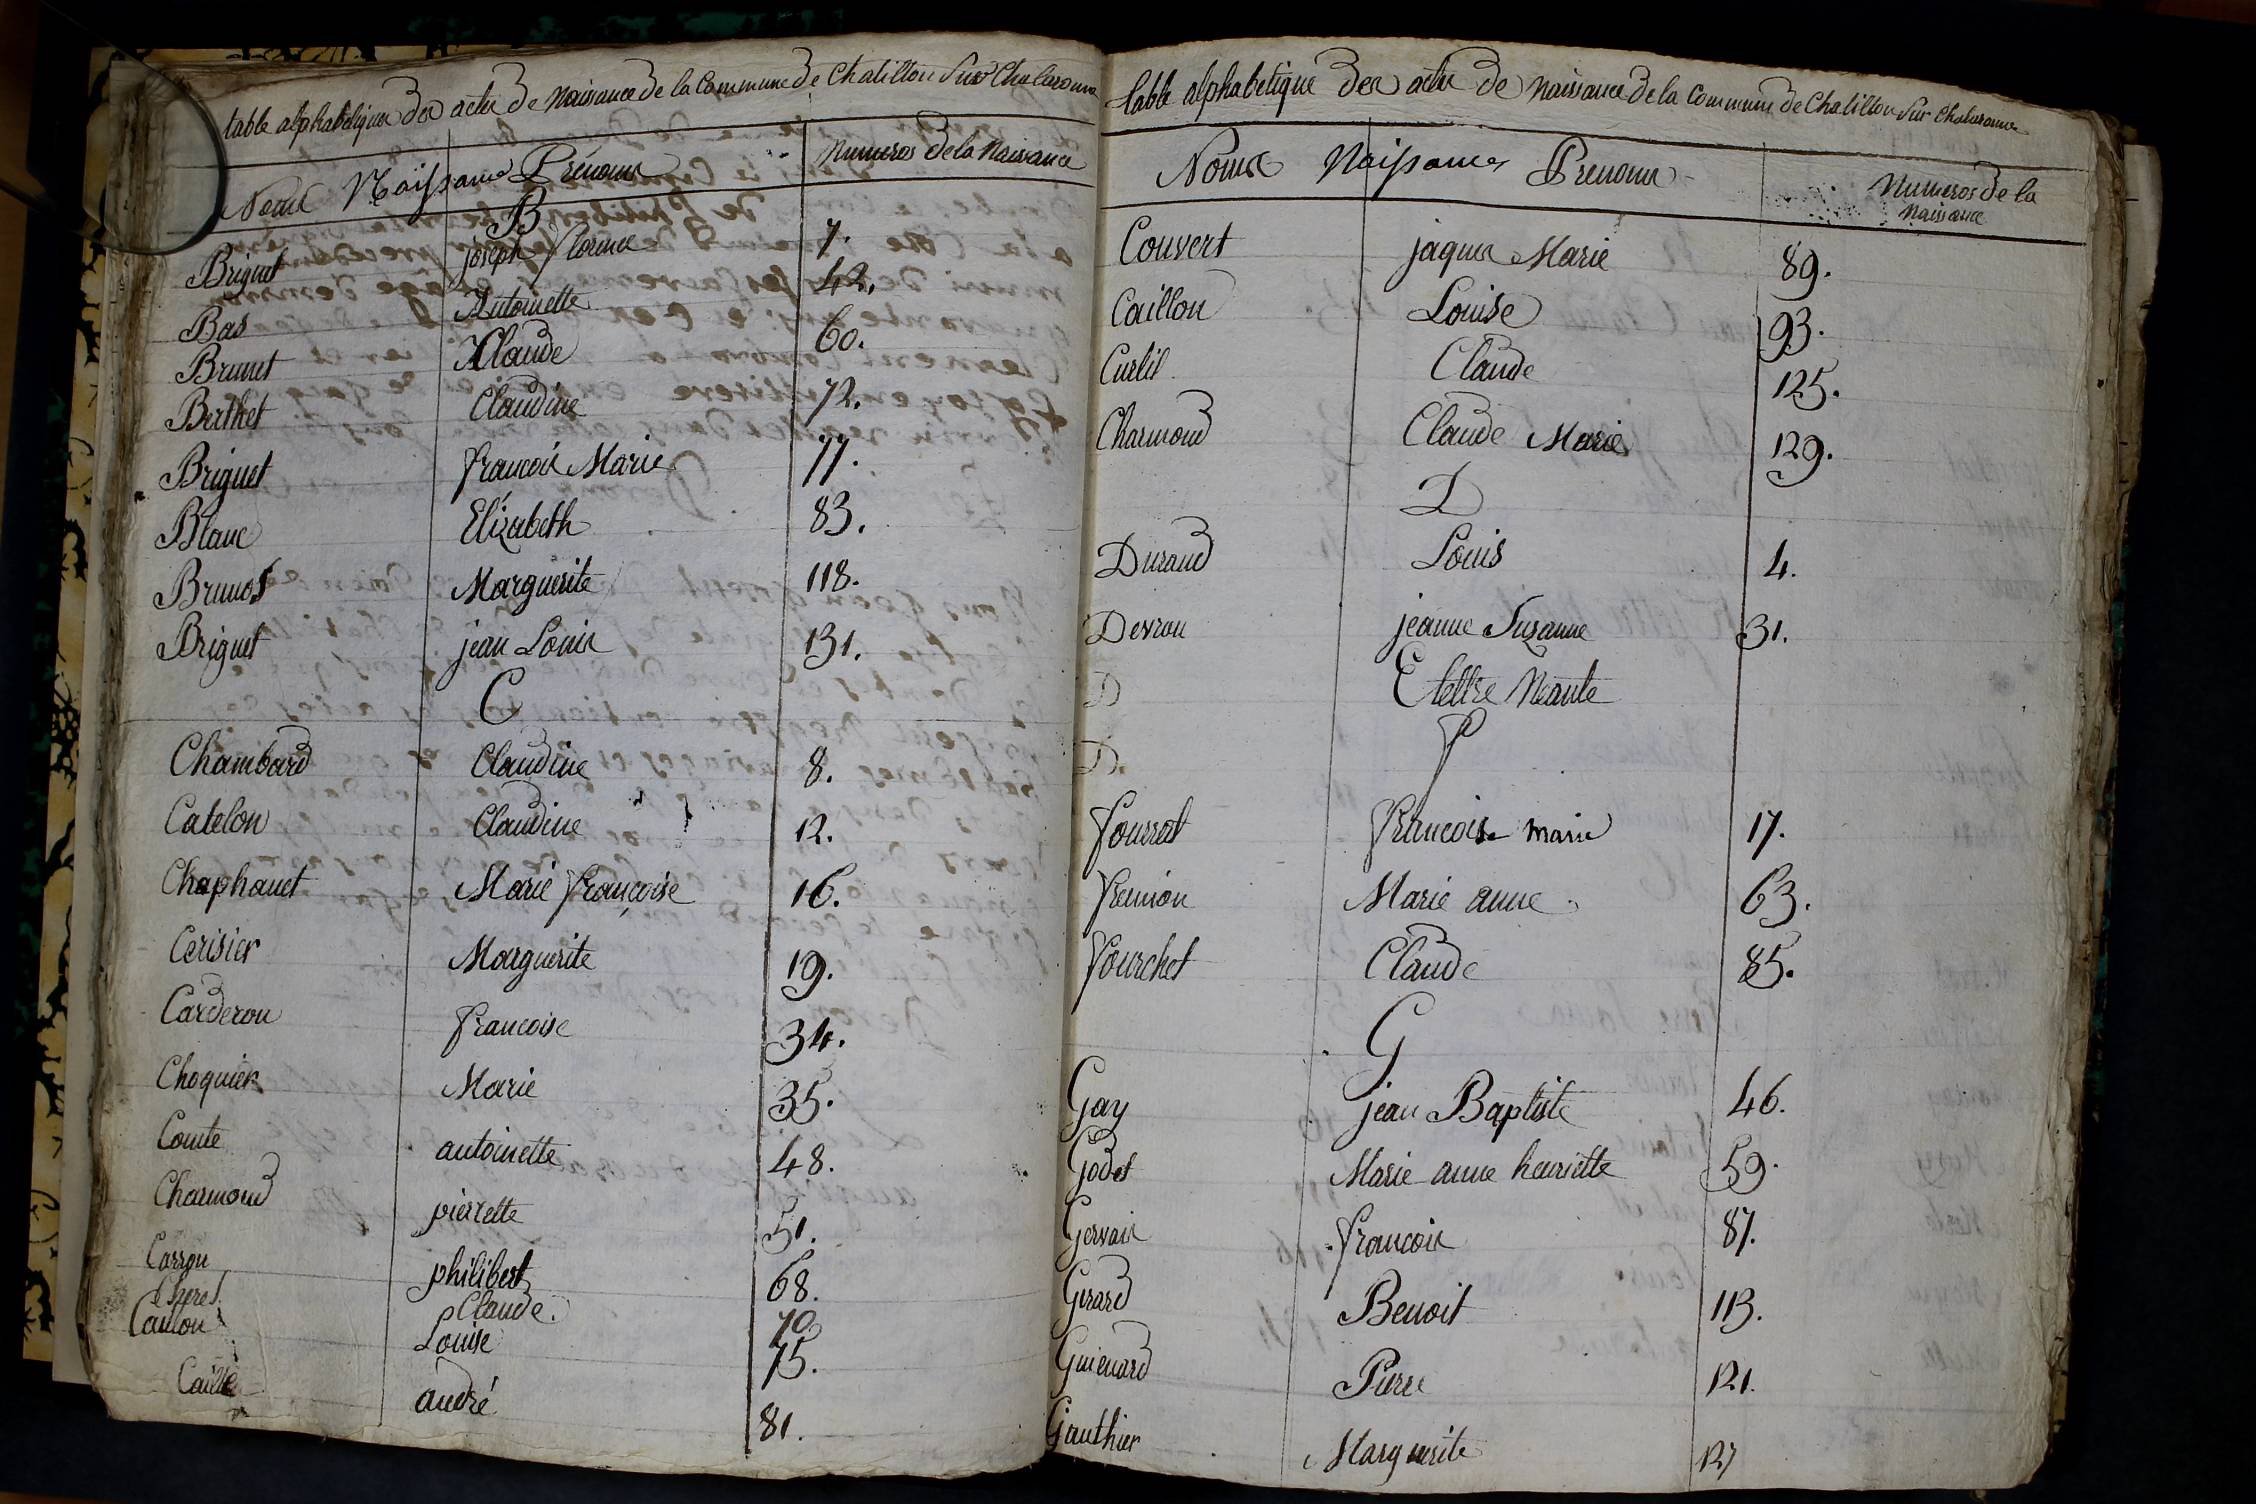 table alphabetique des actes de Naissance de la Commune de Chatillon Sur Chalaronne
Noms Naissances Prénoms Numeros de la Naissance
B
Briguet joseph florence 7.
Bas Antoinette 42.
Brunet Claude 60.
Berthet Claudine 72.
Briguet francois Marie 77.
Blanc Elizabeth 83.
Brunot Marguerite 118.
Briguet jean Louis 131.
C
Chambard Claudine 8.
Catelon Claudine 12.
Chaphanet Marie françoise 16.
Cerisier Marguerite 19.
Carderon francoise 34.
Choquier Marie 35.
Comte antoinette 48.
Charmond pierrette 51.
Carron philibert 68.
Claude. 70
Louise 75.
andré 81.
table alphabetique des actes de Naissance de la Commune de Chatillon Sur Chalaronne
Noms Naissances Prenoms Numeros de la
Naissance
Couvert jaques Marie 89.
Caillon Louise 93.
Curlil Claude 125.
Charmond Claude Marie 129.
D
Durand Louis 4.
Devrou jeanne Suzanne 31.
D E lettre Néante
D. F
fourrat francoise marie 17.
fremion Marie anne 63.
fourchet Claude 85.
G
Gay jean Baptiste 46.
Godet Marie anne henriette 59.
Gervais francois 87.
Girard Benoit 113.
Guienard Pierre 121.
Gauthier Marguerite 127